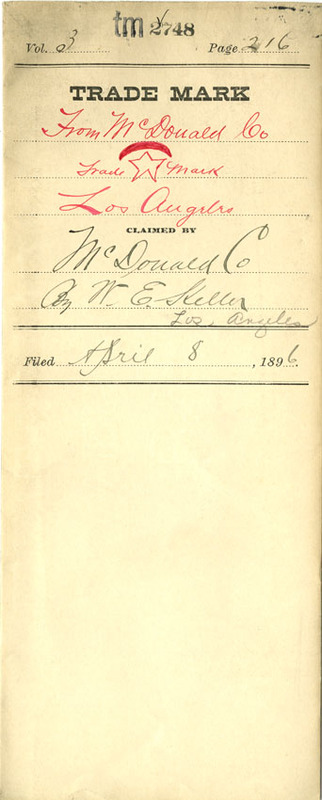 tm 2748
Vol. 3 Page 216
TRADE MARK
From McDonald Co
Trade Mark
Los Angeles
CLAIMED BY
McDonald C
By W. E. Keller
Los Angeles
Filed April 8, 1896